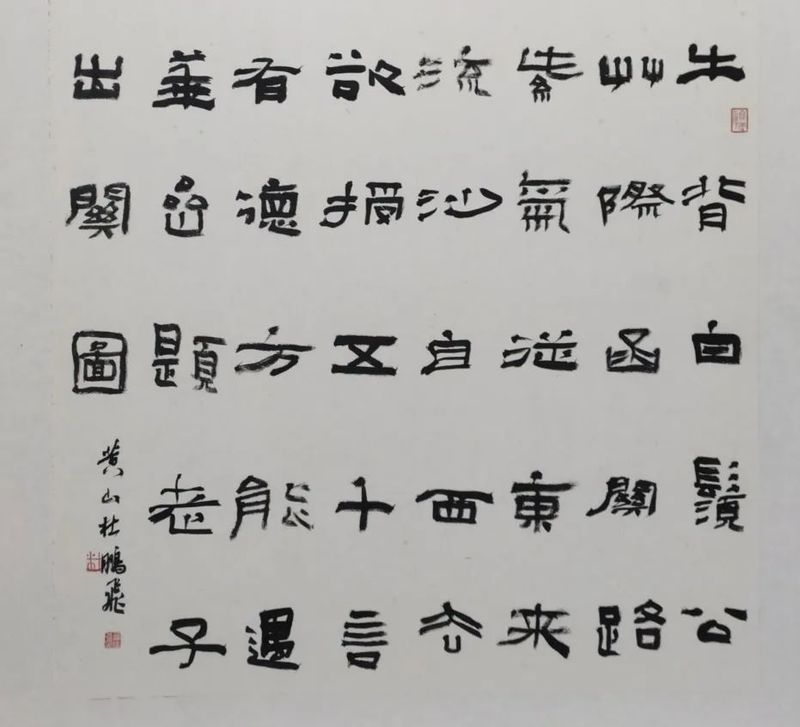 牛背白鬚公
艸際函關路
紫氣從東来
流沙自西去
欲授五千言
有德方能遇
華嵒題老子
出關圖
黄山杜鵬飛